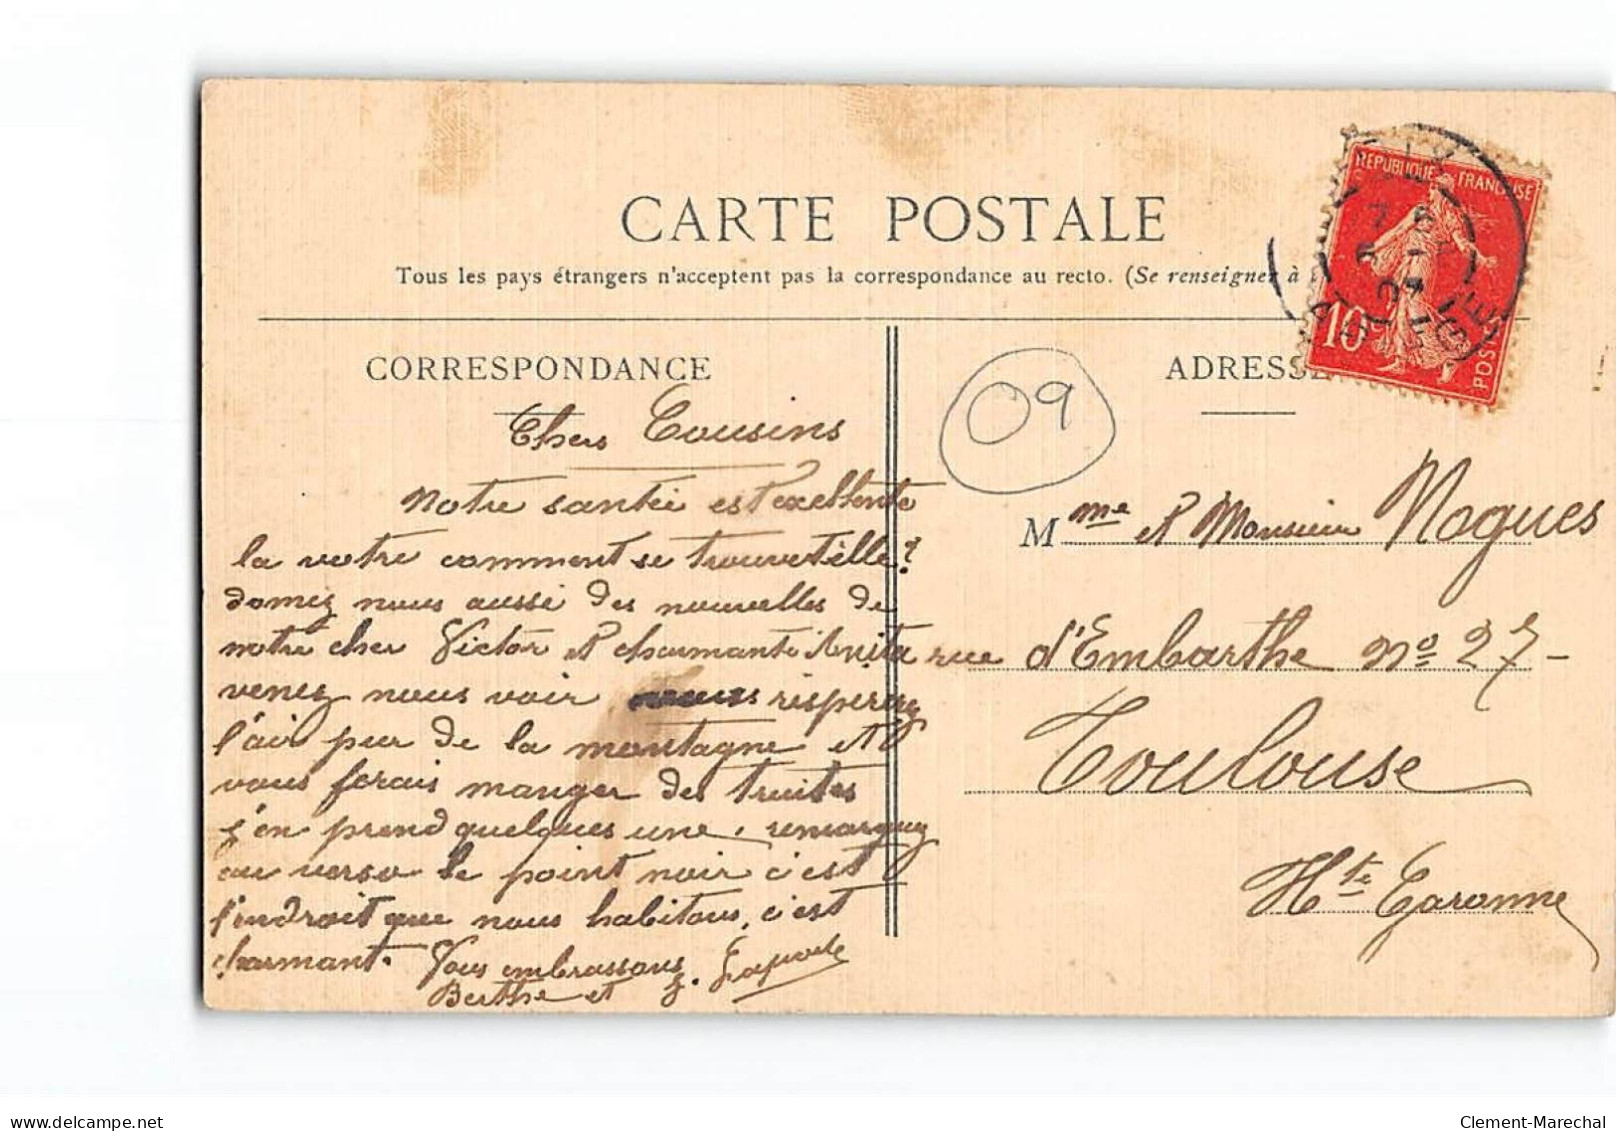 CARTE POSTALE
Tous les pays étrangers n'acceptent pas la correspondance au recto. (Se renseigner à
RÉPUBLIQUE FRANÇAISE
10c
POSTES
CORRESPONDANCE
Chers Cousins
Notre santée est excellente
la votre comment se trouvet'elle?
donnez nous aussi des nouvelles de
notre cher Victor et charmante Anita
venez nous voir vous respirerez
l'air pur de la montagne et
vous ferais manger des truites
j'en prend quelques une, remarquez
au verso le point noir c'est
l'endroit que nous habitons, c'est
charmant. Vous embrassons
Berthe et J. Laporte
09
ADRESSE
Mme et Monsieur Nogues
rue d'Embarthe No 27-
Toulouse
Hte Garonne
Clement-Marechal